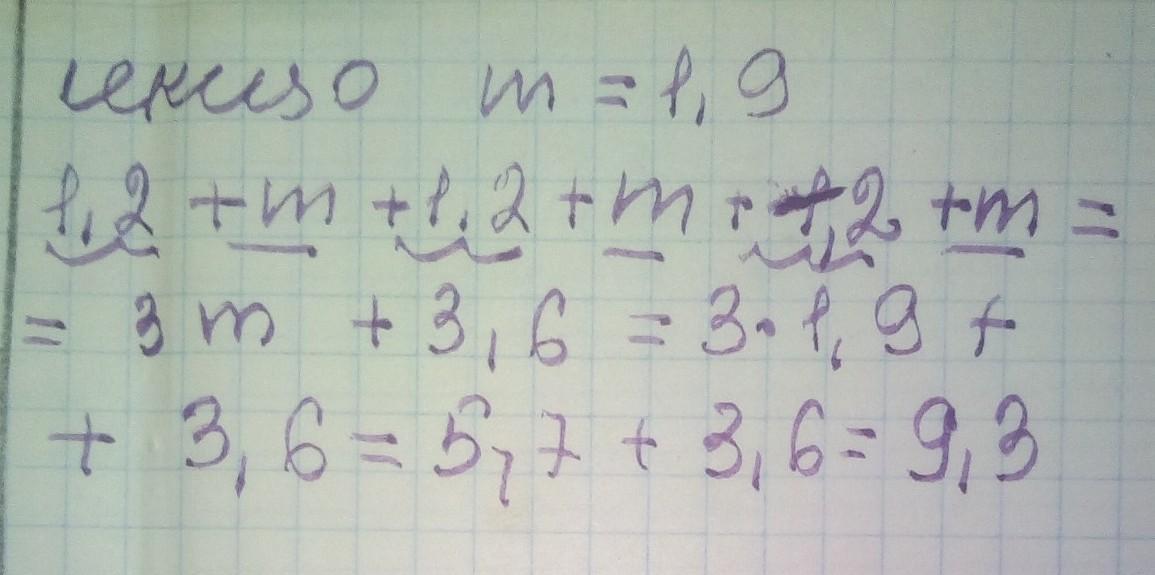 якщо m = 1,9
1,2 + m + 1,2 + m + 1,2 + m =
= 3 m + 3,6 = 3 · 1,9 +
+ 3,6 = 5,7 + 3,6 = 9,3